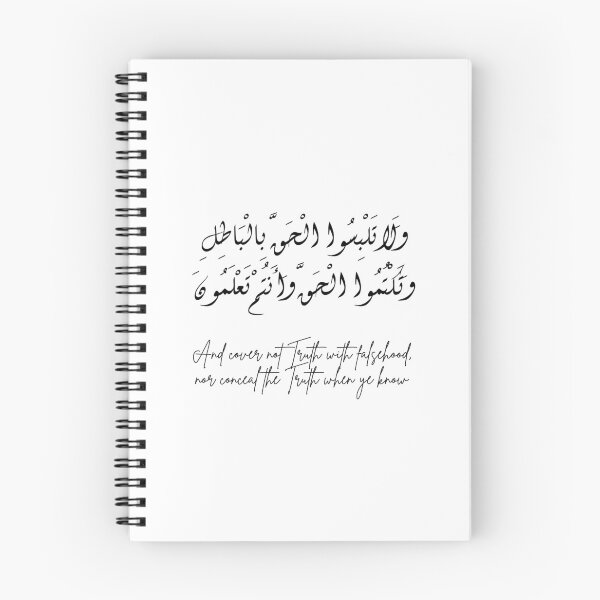 وَلَا تَلْبِسُوا الْحَقَّ بِالْبَاطِلِ
وَتَكْتُمُوا الْحَقَّ وَأَنتُمْ تَعْلَمُونَ
And cover not Truth with falsehood,
nor conceal the Truth when ye know